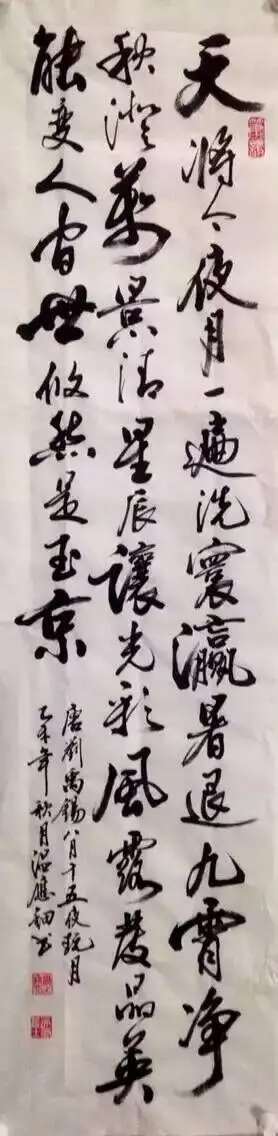 天将今夜月一遍洗寰瀛暑退九霄净
秋澄万景清星辰让光彩风露发晶英
能变人间世攸然是玉京
唐刘禹锡八月十五夜玩月
乙未年秋月温应